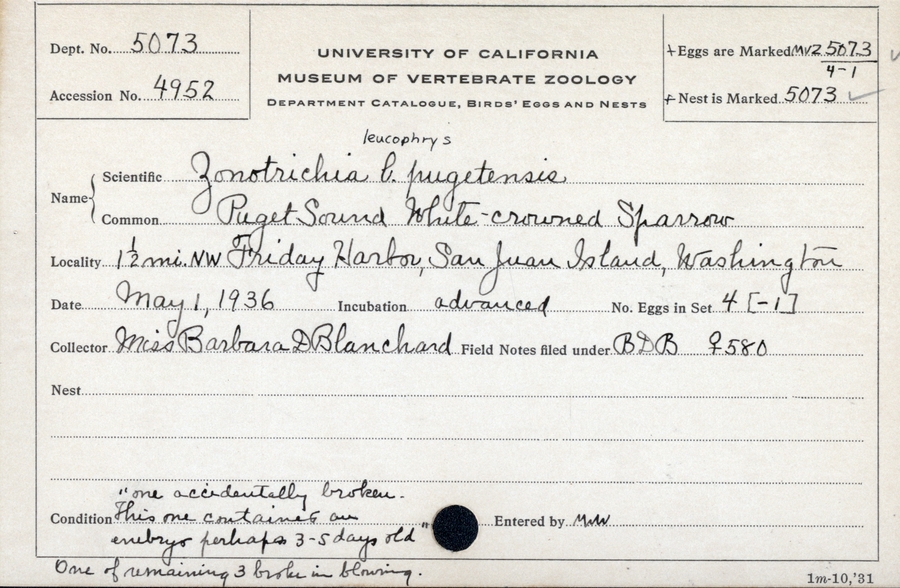 Dept. No. 5073
Accession No. 4952
UNIVERSITY OF CALIFORNIA
MUSEUM OF VERTEBRATE ZOOLOGY
DEPARTMENT CATALOGUE, BIRDS' EGGS AND NESTS
+ Eggs are Marked MVZ 5073
4-1
+ Nest is Marked 5073 ✓
leucophrys
Name { Scientific Zonotrichia l. pugetensis
Common Puget Sound White-crowned Sparrow
Locality 1½ mi. NW of Friday Harbor, San Juan Island, Washington
Date May 1, 1936 Incubation advanced No. Eggs in Set 4 [-1]
Collector Miss Barbara D Blanchard Field Notes filed under BDB ♀580
Nest
"one accidentally broken.
Condition This one contained an
embryo perhaps 3-5 days old" Entered by
One of remaining 3 broke in blowing.
1m-10,'31